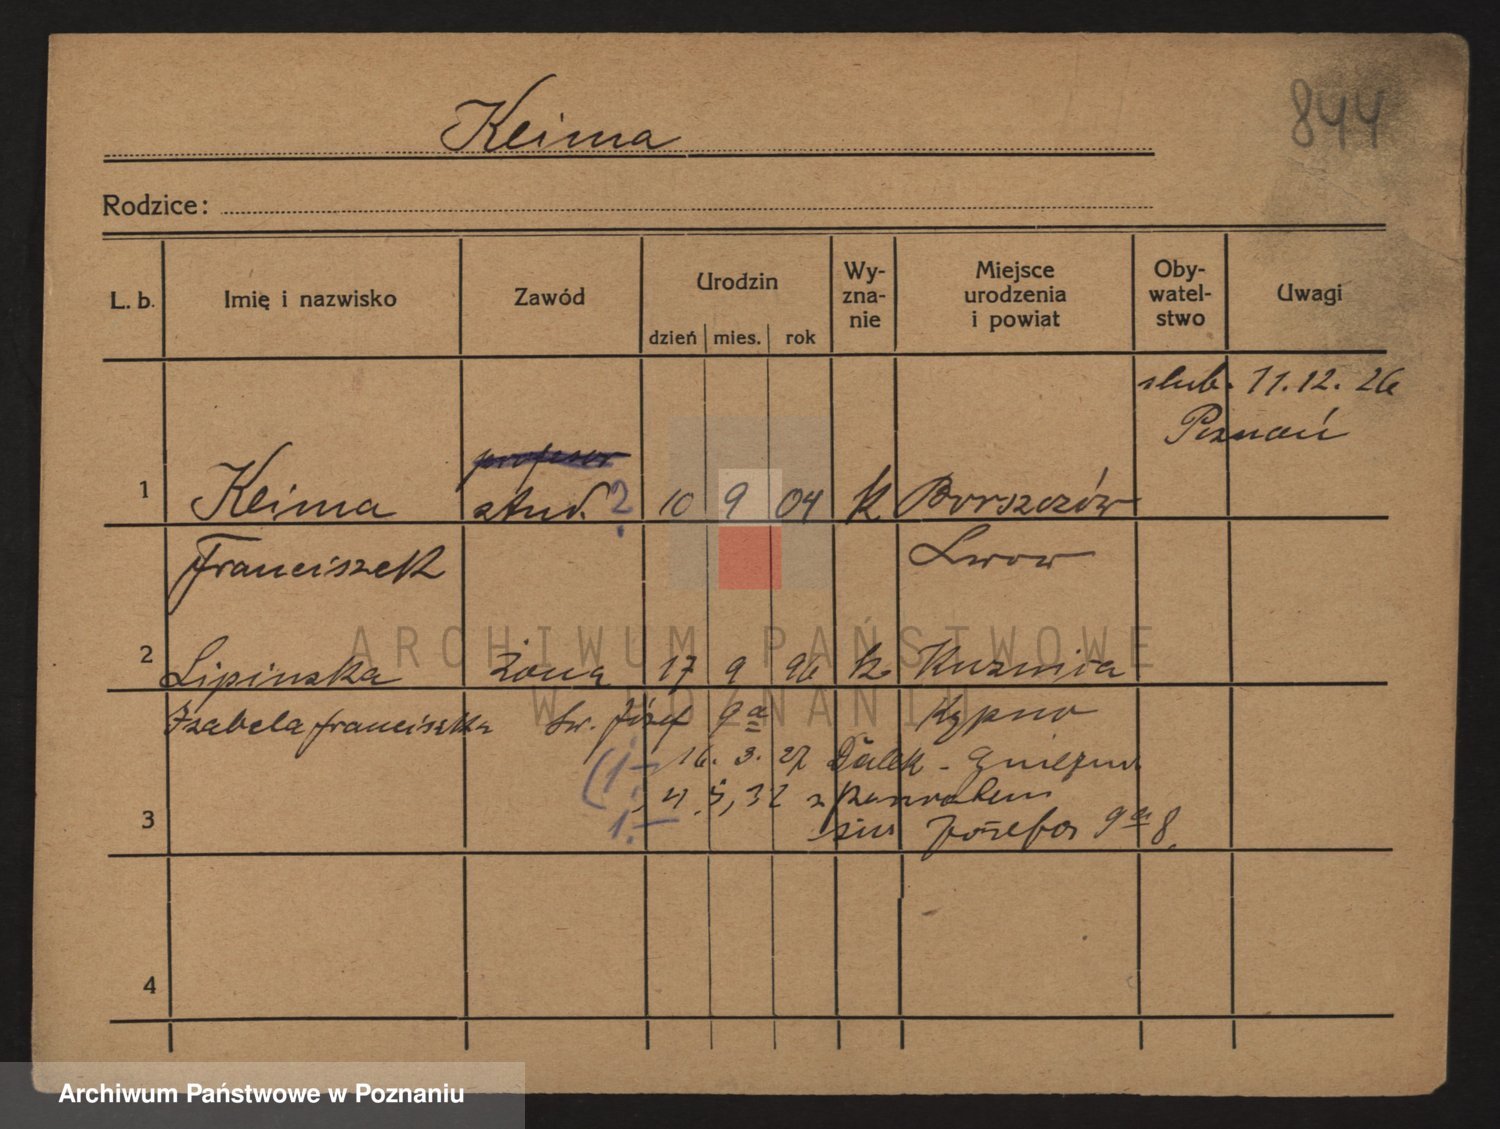 844
Keima
Rodzice:
L. b. Imię i nazwisko Zawód Urodzin dzień mies. rok Wy-zna-nie Miejsce urodzenia i powiat Oby-watel-stwo Uwagi
slub. 11.12. 26
Poznań
profesor
1 Keima stud. ? 10 9 04 k Borszczów
Franciszek Lwow
2 Lipinska żona 17 9 96 k Kuznica
Izabela Franciszka Św. Józef 9a Kępno
(1.- 16. 3. 27 Dalek - Gniezno
4 5, 32 z powrotem
3 1.- Józefa 9a 8
4
ARCHIWUM PAŃSTWOWE
W POZNANIU
Archiwum Państwowe w Poznaniu